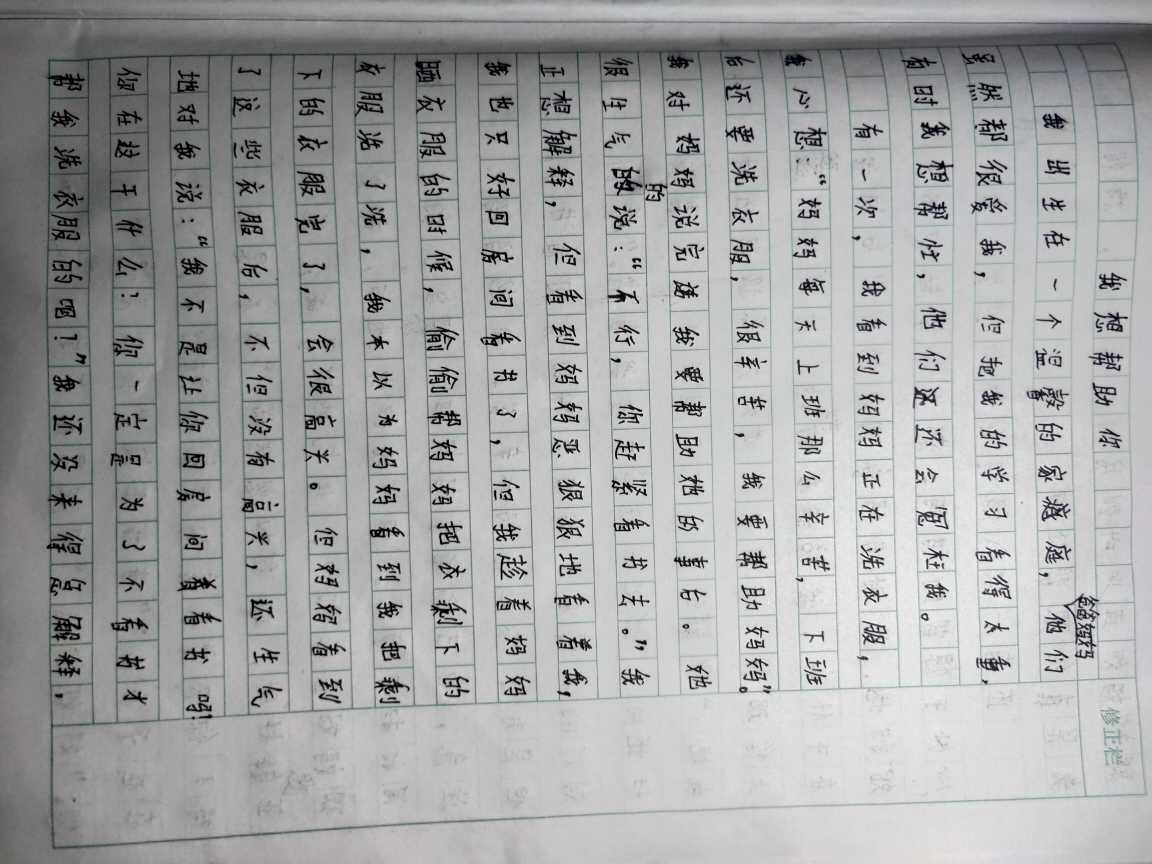 我想帮助你
我出生在一个温馨的家庭，他们
爸爸妈妈
虽然都很爱我，但把我的学习看得太重，
有时我想帮忙，他们还会冤枉我。
有一次，我看到妈妈正在洗衣服，
我心想：“妈妈每天上班那么辛苦，下班
后还要洗衣服，很辛苦，我要帮助妈妈。”
我对妈妈说完我要帮助她的事后。她
的
很生气的说：“不行，你赶紧看书去。”我
正想解释，但看到妈妈恶狠狠地看着我，
我也只好回房间看书了，但我趁着妈妈
晒衣服的时候，偷偷帮妈妈把衣剩下的
衣服洗了洗，我本以为妈妈看到我把剩
下的衣服完了，会很高兴。但妈妈看到
了这些衣服后，不但没有高兴，还生气
地对我说：“我不是让你回房间看书吗！
你在这干什么？你一定是为了不看书才
帮我洗衣服的吧！”我还没来得急解释，
修正栏